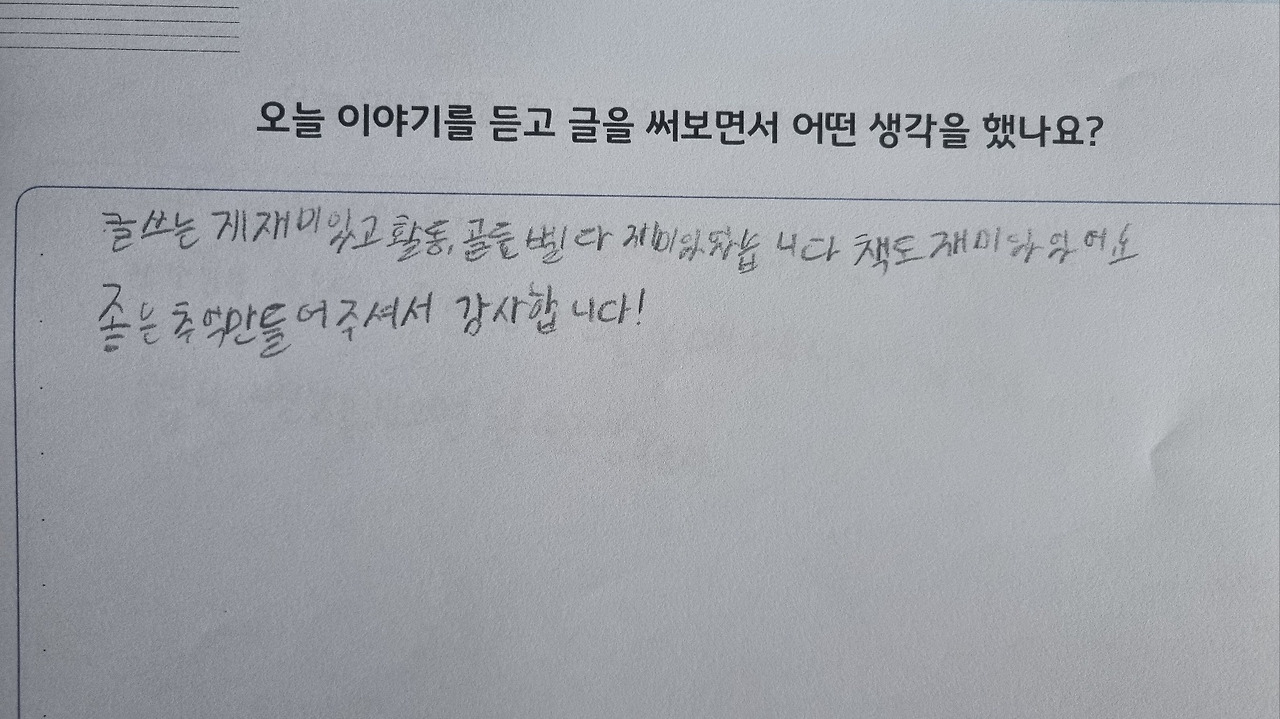 오늘 이야기를 듣고 글을 써보면서 어떤 생각을 했나요?
글쓰는 게재미있고 활동, 골든벨 다 재미있었습니다 책도 재미있었어요
좋은 추억만들어주셔서 감사합니다!